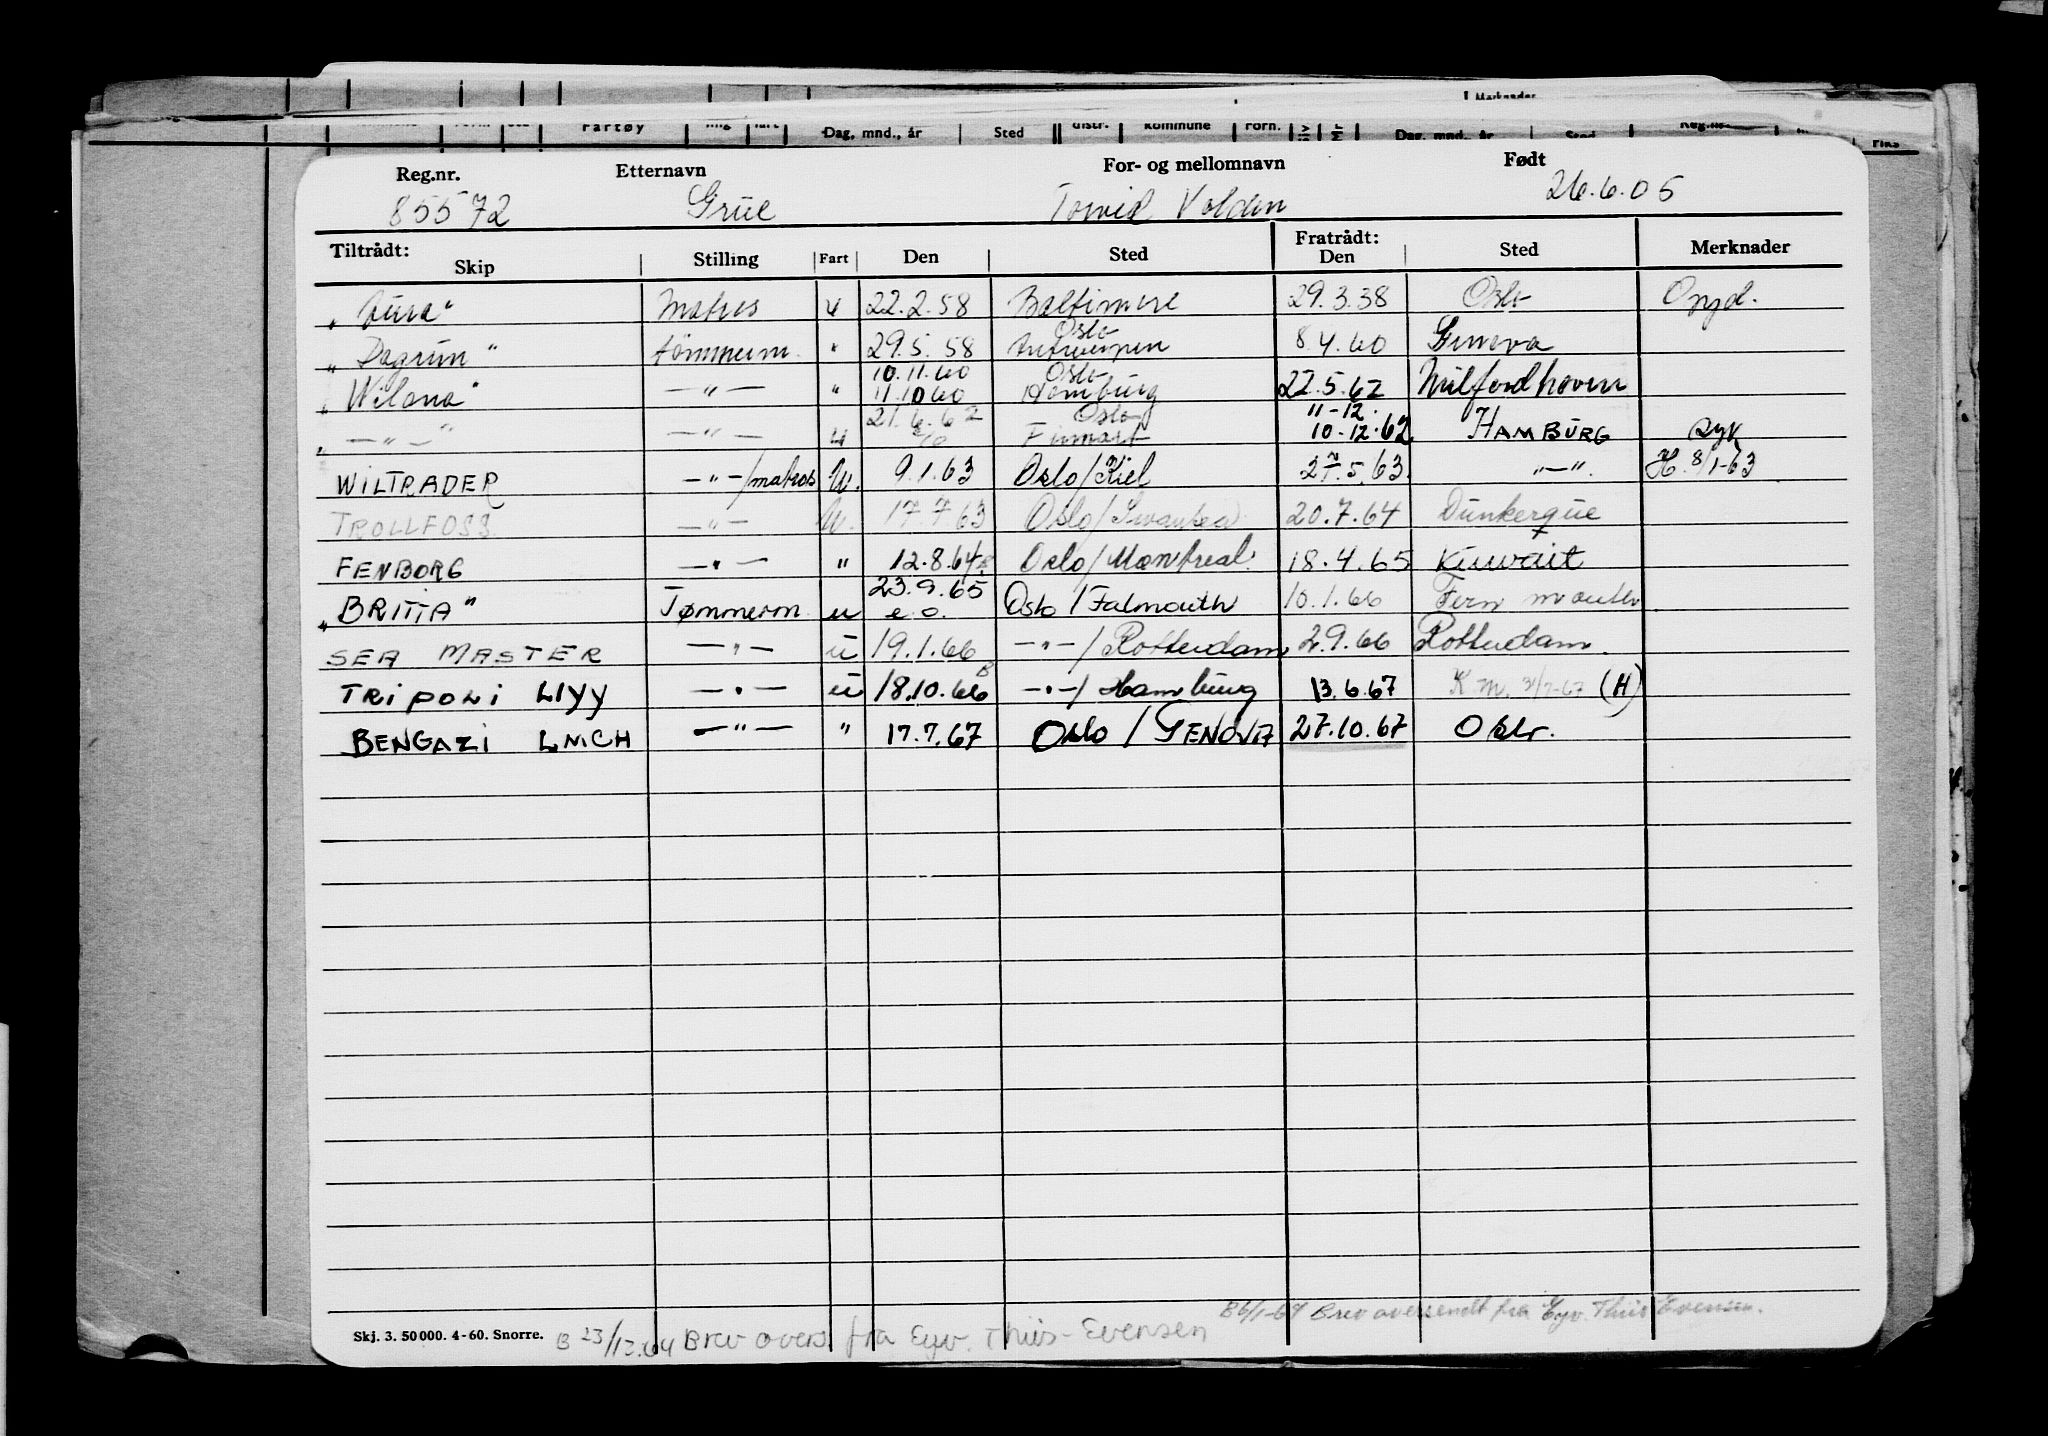 Merknader
Fartøy Dag, mnd., år Sted distr. kommune Forn. Dag, mnd., år Sted
Reg.nr. Etternavn For- og mellomnavn Født
85572 Grüe Torvid Volden 26.6.05
Tiltrådt: Fratrådt:
Skip Stilling Fart Den Sted Den Sted Merknader
Matros u 22.2.58 Baltimore 29.3.38 Oslo
Oslo
„Dagrun" tömmerm. " 29.5.58 Antwerpen 8.4.60 Genova
10.11.60 Oslo
„Wilana" —"— " 11.10 60 Hamburg 22.5.62 Milfordhaven
21.6.62 Oslo 11-12.
„—"—" —"— u Finnart 10.12.62. HAMBURG syk
WILTRADER —"—/matros U. 9.1.63 Oslo/Kiel 27.5.63. "—". H. 8/1-63
TROLLFOSS. —"— U. 17.7.63 Oslo/Swansea 20.7.64 Dunkerque
FENBORG —"— " 12.8.64 Oslo/Montreal. 18.4.65 Kuwait
23.9.65
„BRITTA" Tømmerm u e.o. Oslo/Falmouth 10.1.66
SEA MASTER —"— u 19.1.66 —"—/Rotterdam 2.9.66 Rotterdam.
TRIPOLI LIYY —"— u 18.10.66 —"—/Hamburg 13.6.67 K.M. 31/7-67 (H)
BENGAZI LMCH —"— " 17.7.67 Oslo / GENOVA 27.10.67 Oslo.
B6/1-64 Brev oversendt fra Eyv. Thiis Evensen.
Skj. 3. 50000. 4-60. Snorre. B 23/12.64 Brev overs. fra Eyv. Thiis-Evensen